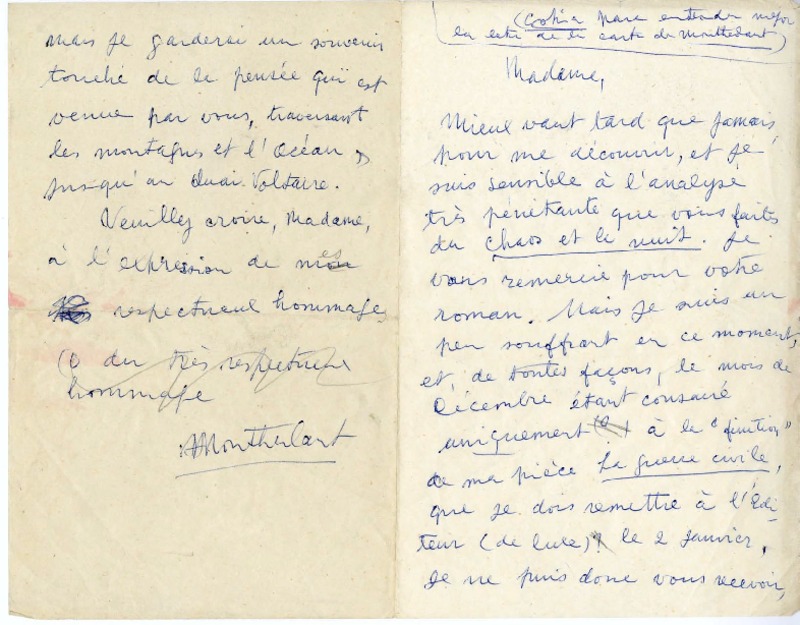 (Copia para entender mejor
la letra de la carta de Montherlant)
Madame,
Mieux vaut tard que jamais,
pour me découvrir, et je
suis sensible à l'analyse
très pénétrante que vous faites
du chaos et la nuit. Je
vous remercie pour votre
roman. Mais je suis un
peu souffrant en ce moment,
et, de toutes façons, le mois de
Décembre étant consacré
uniquement à la "finition"
de ma pièce La guerre civile,
que je dois remettre à l'édi-
teur (de luxe) le 2 janvier,
Je ne puis donc vous recevoir,
mais je garderai un souvenir
touché de la pensée qui est
venue par vous, traversant
les montagnes et l'Océan,
jusqu'au Quai Voltaire.
Veuillez croire, Madame,
à l'expression de mes
respectueux hommages
(o du très respectueux
hommage
Montherlant